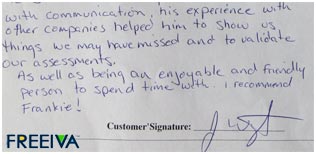 with communication, his experience with
other companies helped him to show us
things we may have missed and to validate
our assessments.
As well as being an enjoyable and friendly
person to spend time with. i recommend
Frankie!
Customer'Signature:
FREEIVA